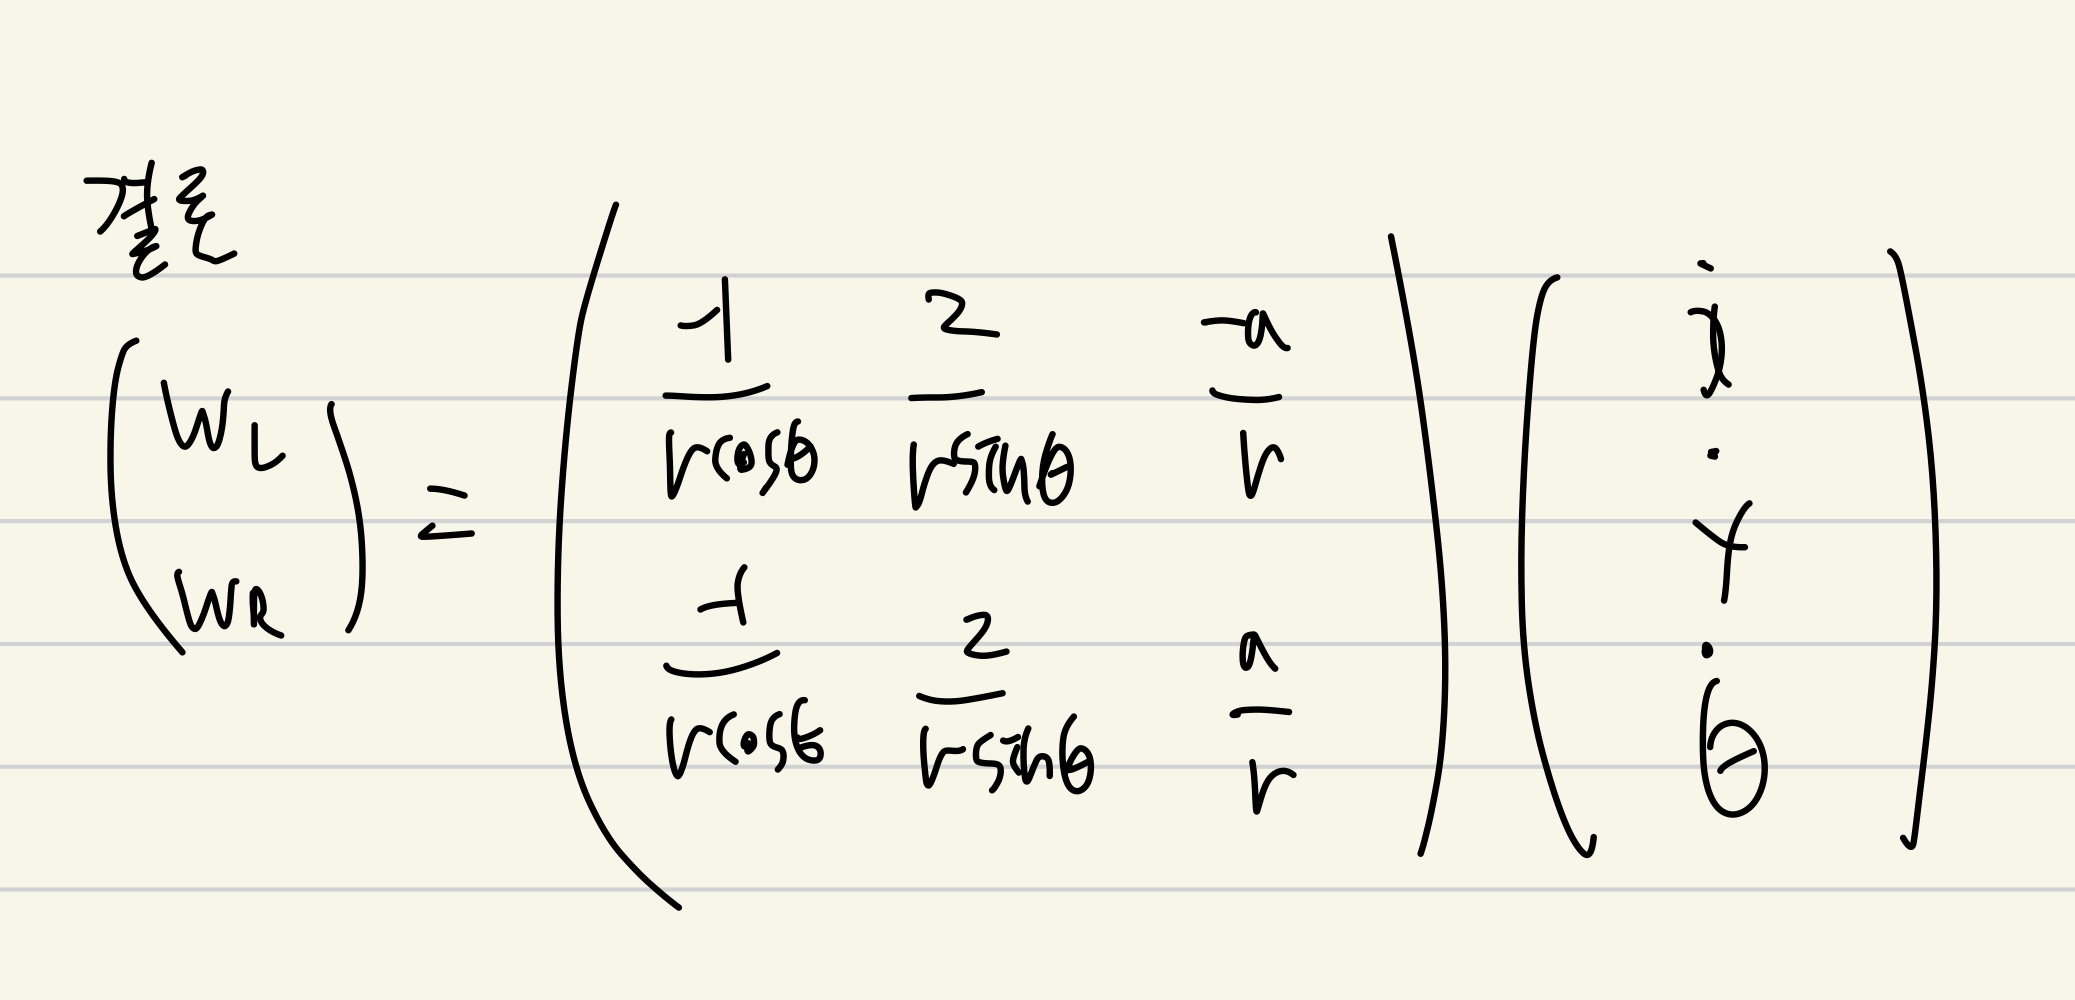 결론
(W_L, W_R) = ( -1/(rcosθ) 2/(rsinθ) -a/r ; -1/(rcosθ) 2/(rsinθ) a/r ) (ẋ, ẏ, θ̇)